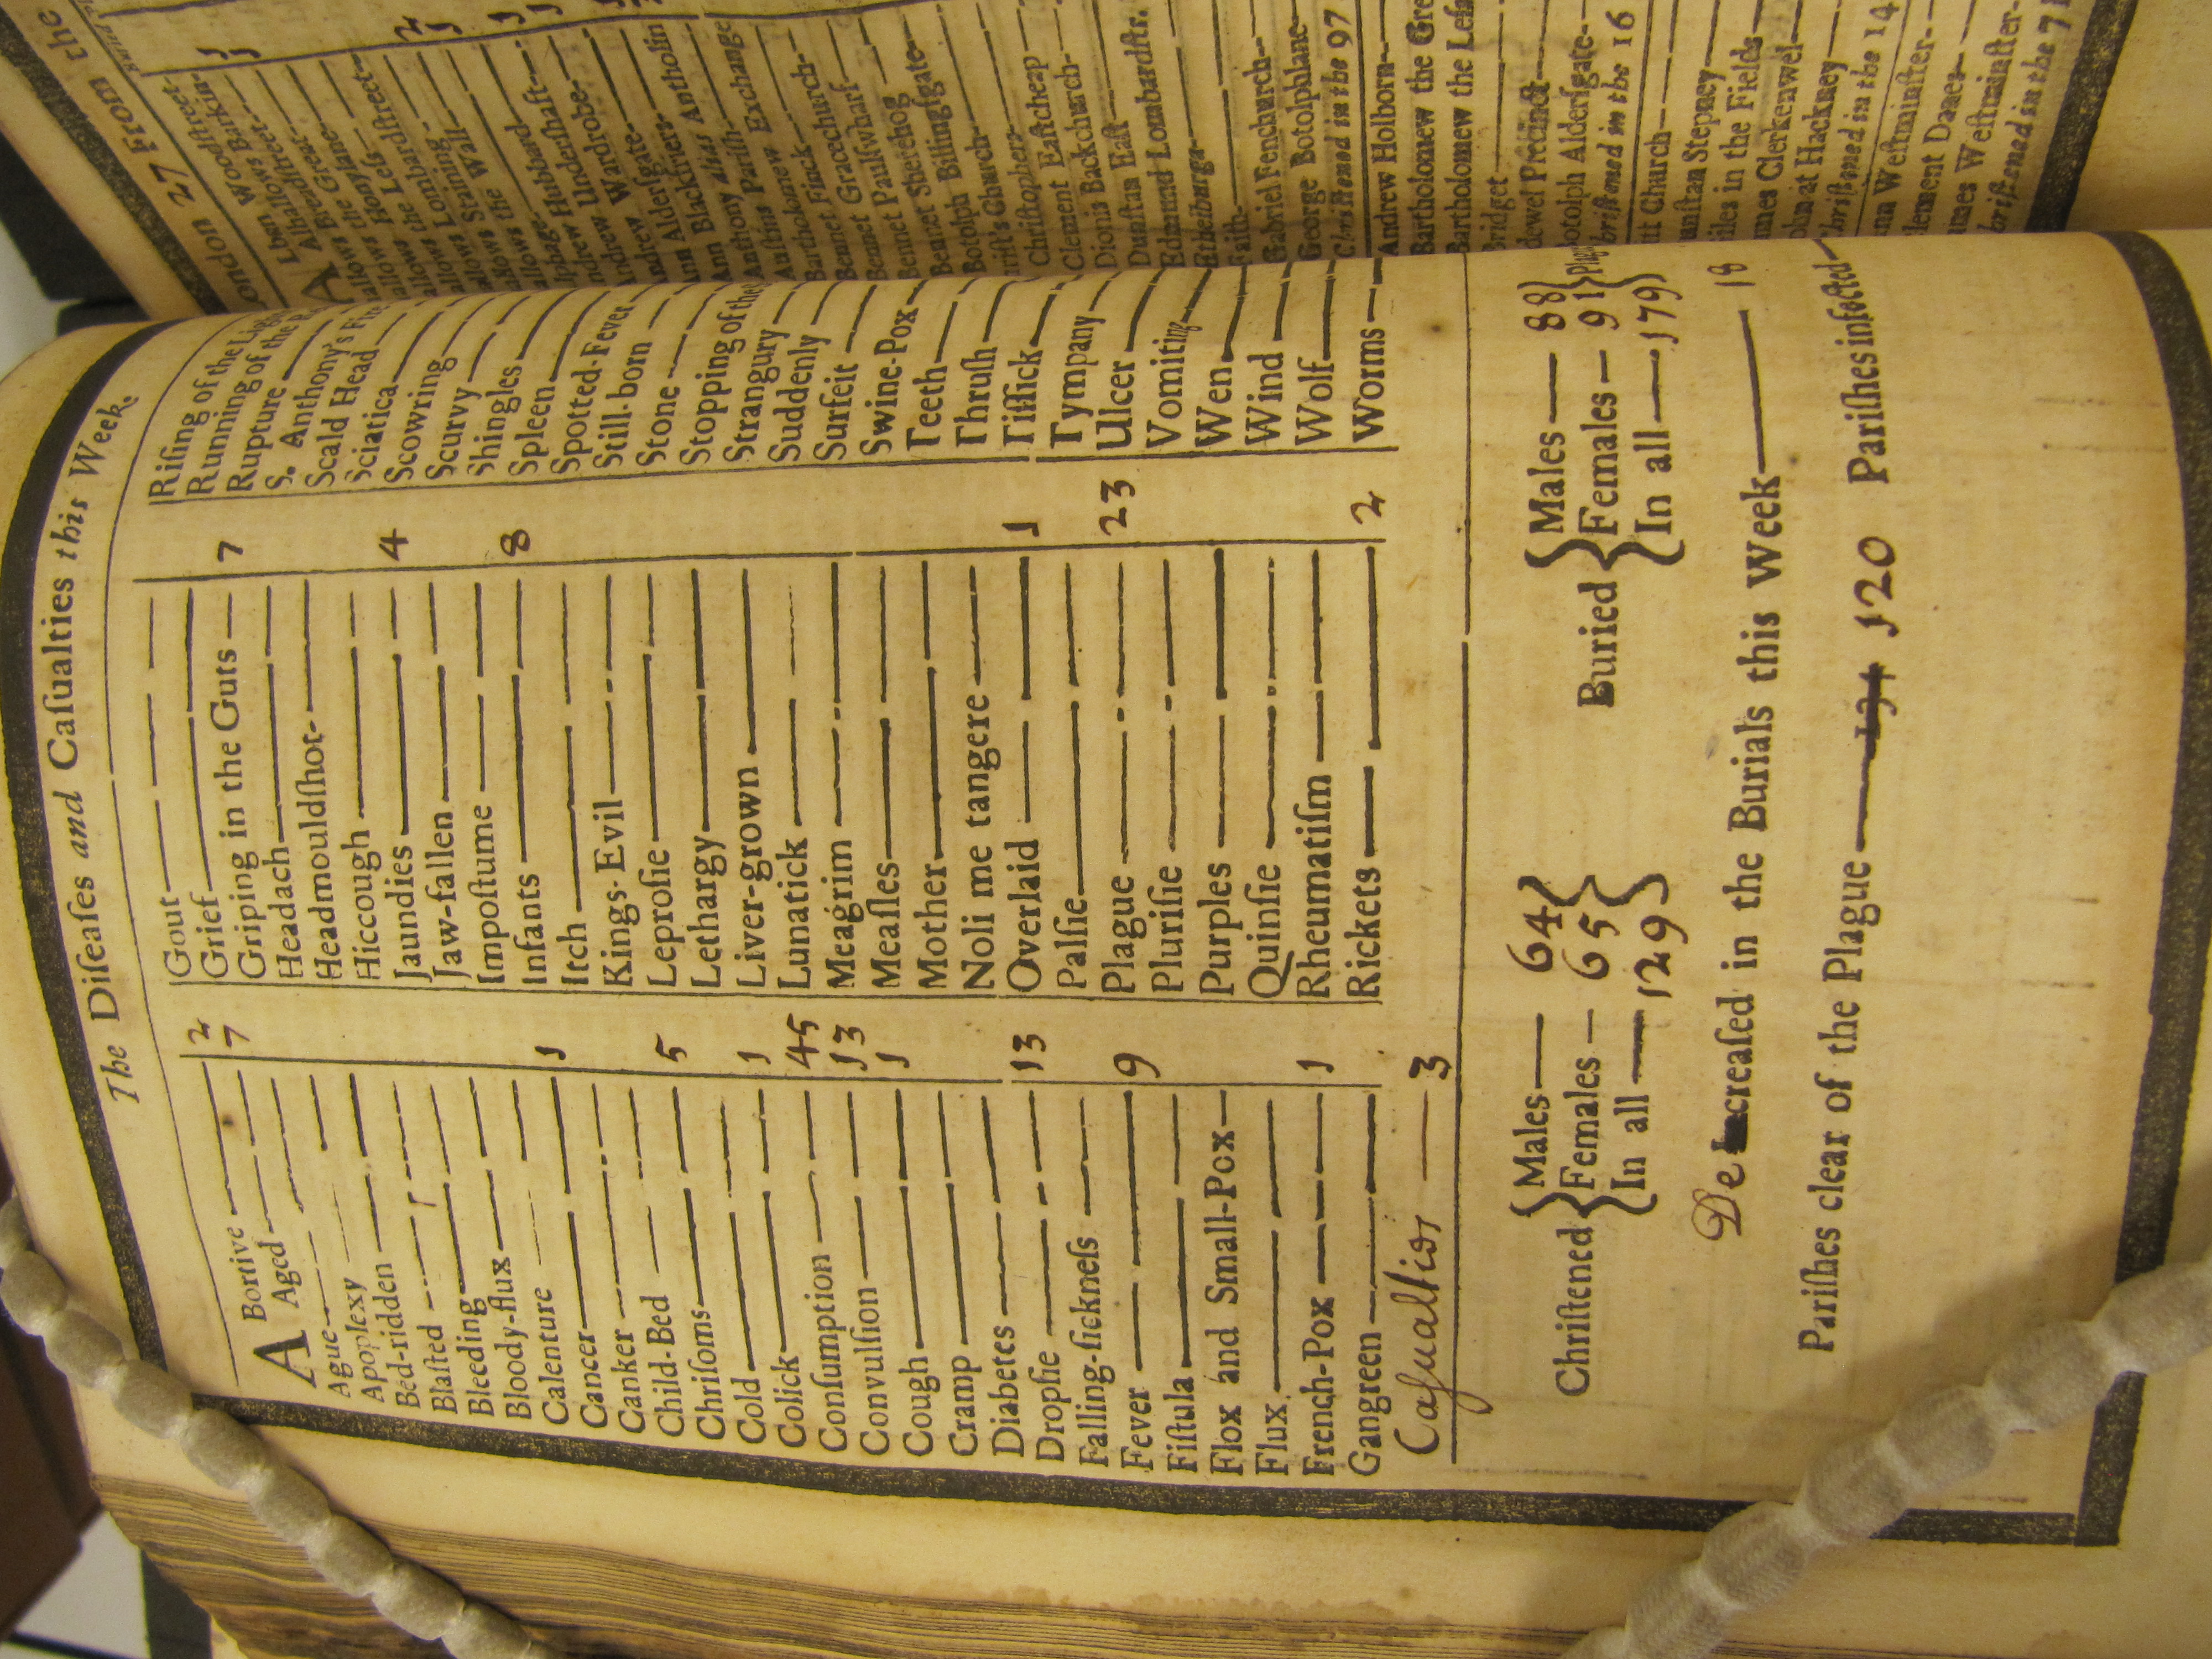 The Diſeaſes and Caſualties this Week.
A Bortive 2
Aged 7
Ague
Appoplexy
Bed-ridden
Blaſted
Bleeding
Bloody-flux
Calenture
Cancer 1
Canker
Child-Bed
Chriſoms 5
Cold
Colick 1
Conſumption 45
Convulſion 13
Cough 1
Cramp
Diabetes
Dropſie 13
Falling-ſickneſs
Fever 9
Fiſtula
Flox and Small-Pox
Flux
French-Pox 1
Gangreen
Caſualties 3
Gout
Grief
Griping in the Guts 7
Headach
Headmouldſhot
Hiccough
Jaundies 4
Jaw-fallen
Impoſtume
Infants 8
Itch
Kings-Evil
Leproſie
Lethargy
Liver-grown
Lunatick
Meagrim
Meaſles
Mother
Noli me tangere
Overlaid 1
Palſie
Plague 23
Pluriſie
Purples
Quinſie
Rheumatiſm
Rickets 2
Riſing of the
Running of the
Rupture
S. Anthony's
Scald Head
Sciatica
Scowring
Scurvy
Shingles
Spleen
Spotted-Fever
Still-born
Stone
Stopping of the
Strangury
Suddenly
Surfeit
Swine-Pox
Teeth
Thruſh
Tiſſick
Tympany
Ulcer
Vomiting
Wen
Wind
Wolf
Worms
Chriſtened { Males 64 Females 65 In all 129 }
Buried { Males 88 Females 91 In all 179 }
Decreaſed in the Burials this Week 18
Pariſhes clear of the Plague 120 Pariſhes infected
London 27 From the
Alhallows Barking
Alhallows Breadſtreet
Alhallows Great
Alhallows Honylane
Alhallows Leſs
Alhallows Lombardſtreet
Alhallows Staining
Alhallows the Wall
Alphage
Andrew Hubbard
Andrew Underſhaft
Andrew Wardrobe
Ann Alderſgate
Ann Blackfriers
Antholin
Anthony alias Antholin
Auſtins Pariſh
Bartholomew Exchange
Bennet Finck
Bennet Gracechurch
Bennet Paulſwharf
Bennet Sherehog
Botolph Billingſgate
Chriſt's Church
Chriſtophers
Clement Eaſtcheap
Dionis Backchurch
Dunſtan Eaſt
Edmund Lombardſtr.
Ethelburga
Faith
Gabriel Fenchurch
George Botolphlane
Chriſtned in the 97
Andrew Holborn
Bartholomew the Gre
Bartholomew the Leſs
Bridget
Botolph Alderſgate
in the 16
Church
Dunſtan Stepney
Giles in the Fields
James Clerkenwel
at Hackney
in the 14
Weſtminſter
Clement Danes
James Weſtminſter
in the 7